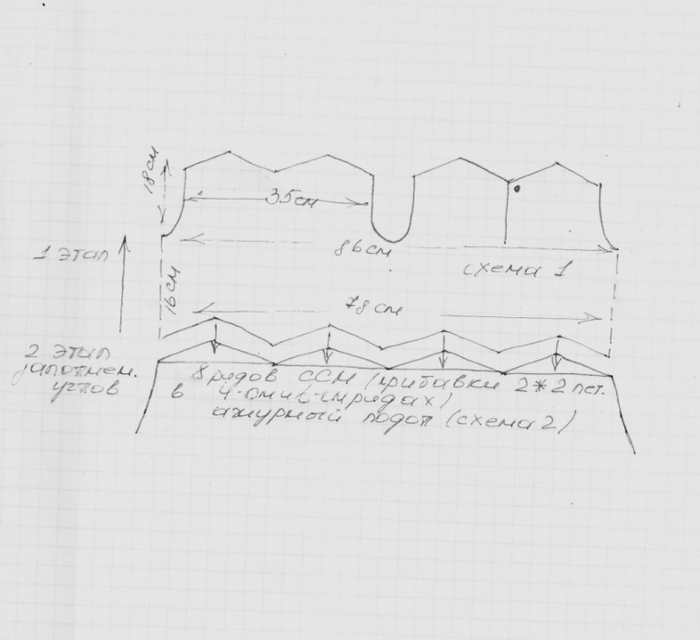 18см
35см
86см
1 этап
схема 1
16см
78 см
2 этап
заполнен.
углов
8 рядов ССН (прибавки 2*2 пет.
в 4-ом и 6-м рядах)
ажурный подол (схема 2)